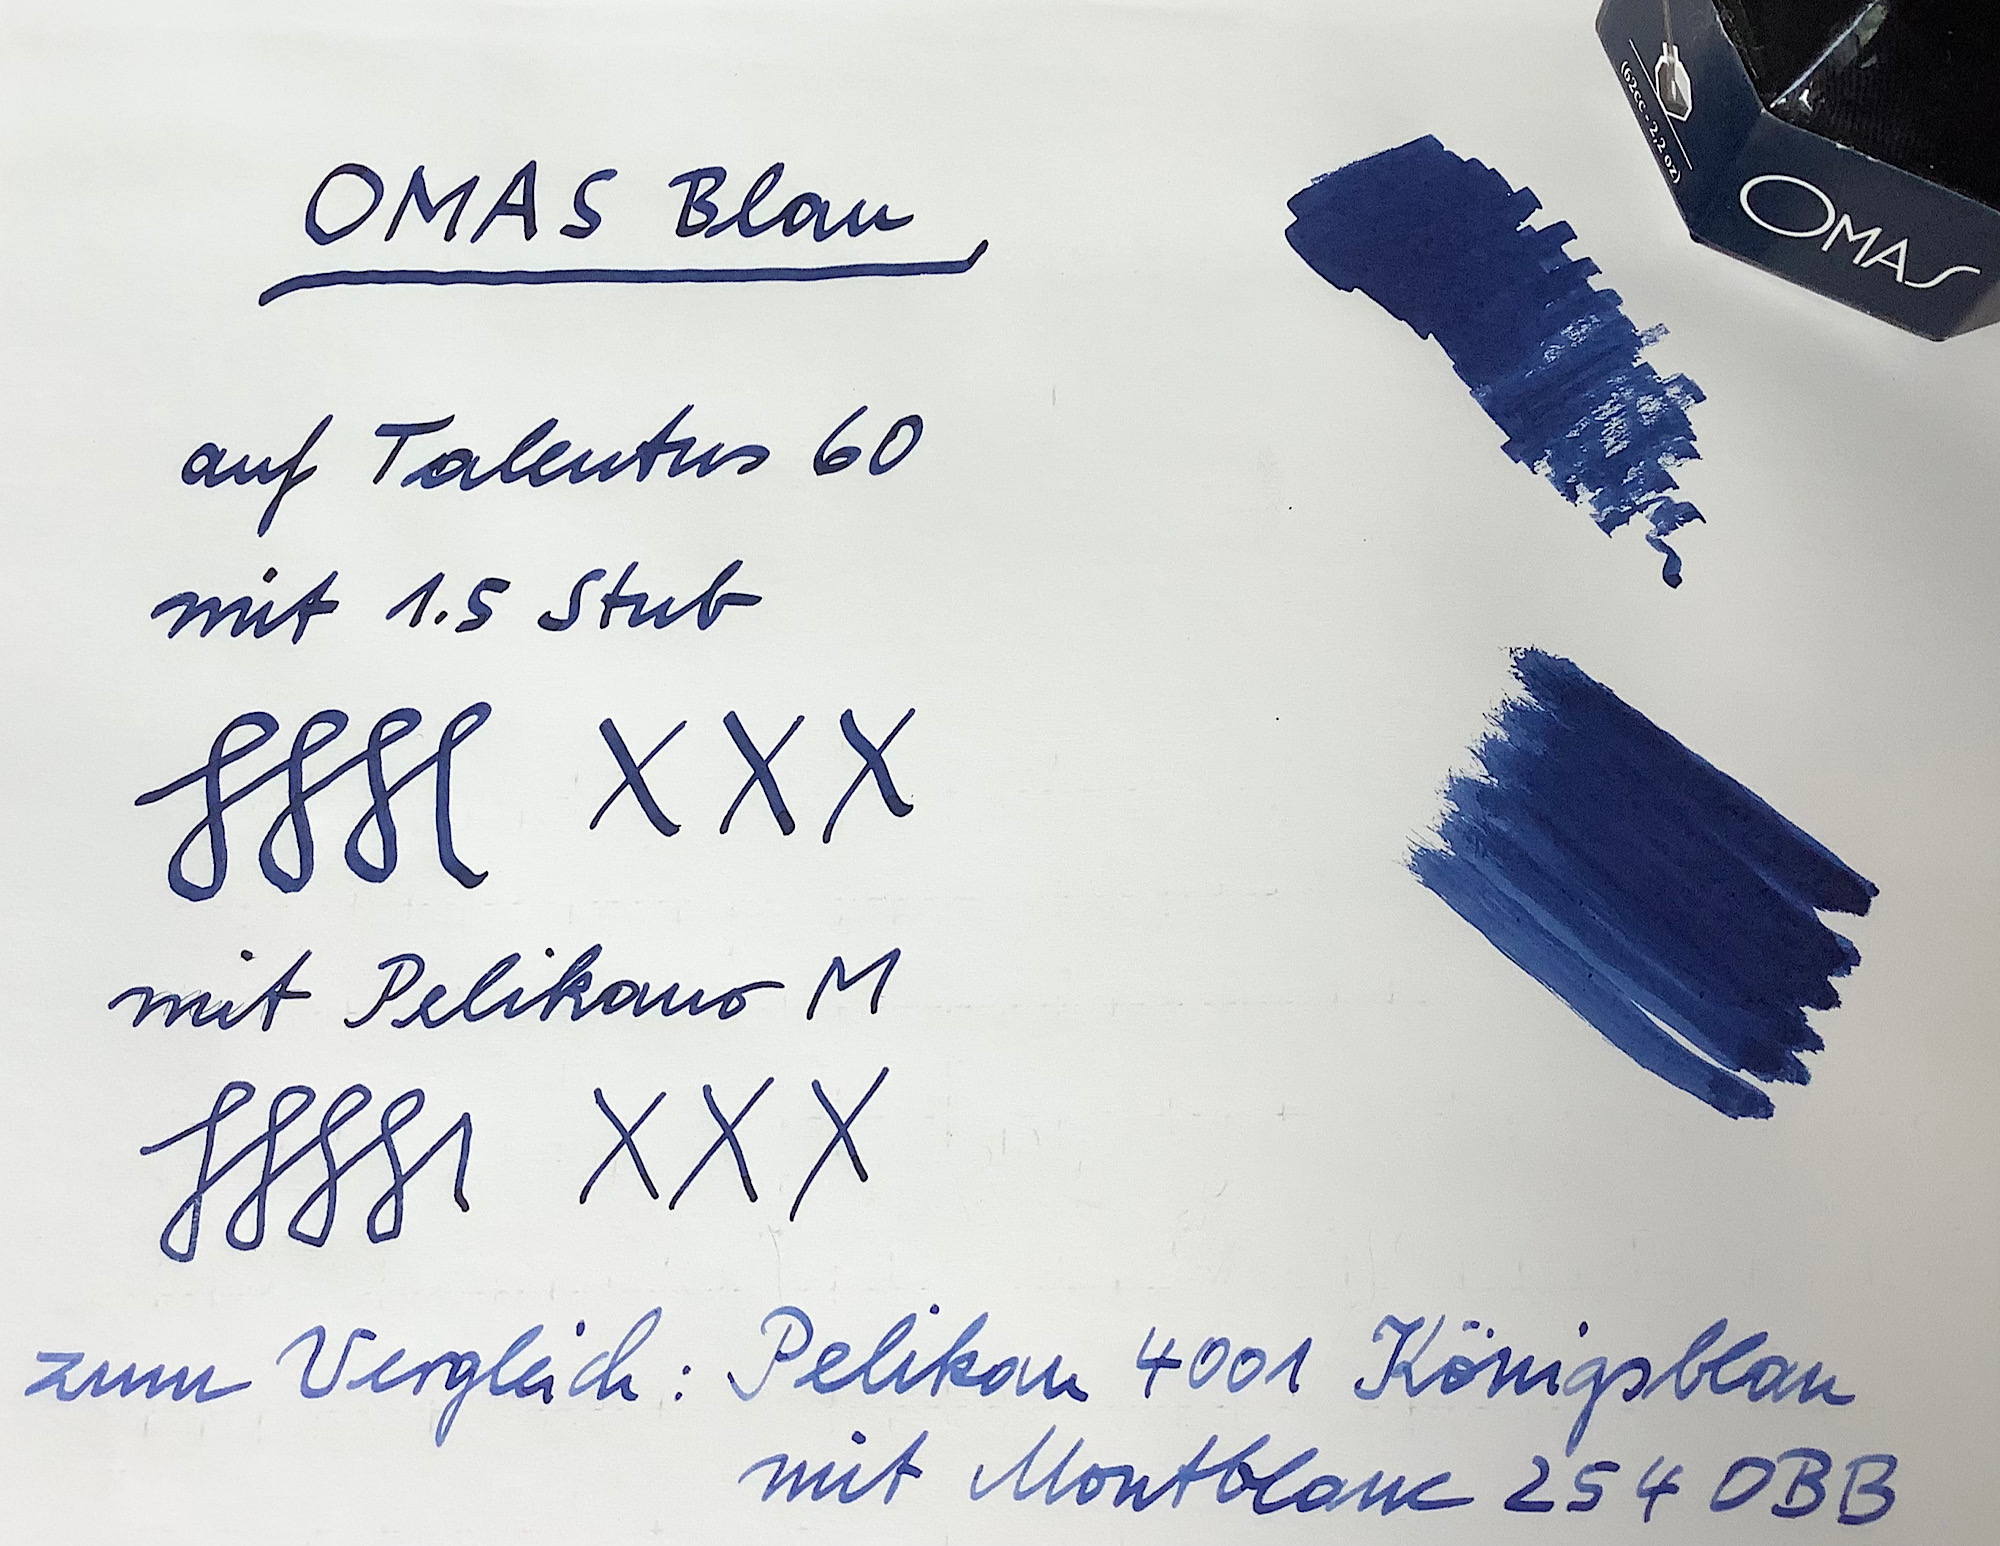 OMAS Blau
(62cc - 2,2 oz)
OMAS
auf Talentus 60
mit 1.5 Stub
XXX
mit Pelikano M
XXX
zum Vergleich: Pelikan 4001 Königsblau
mit Montblanc 254 OBB